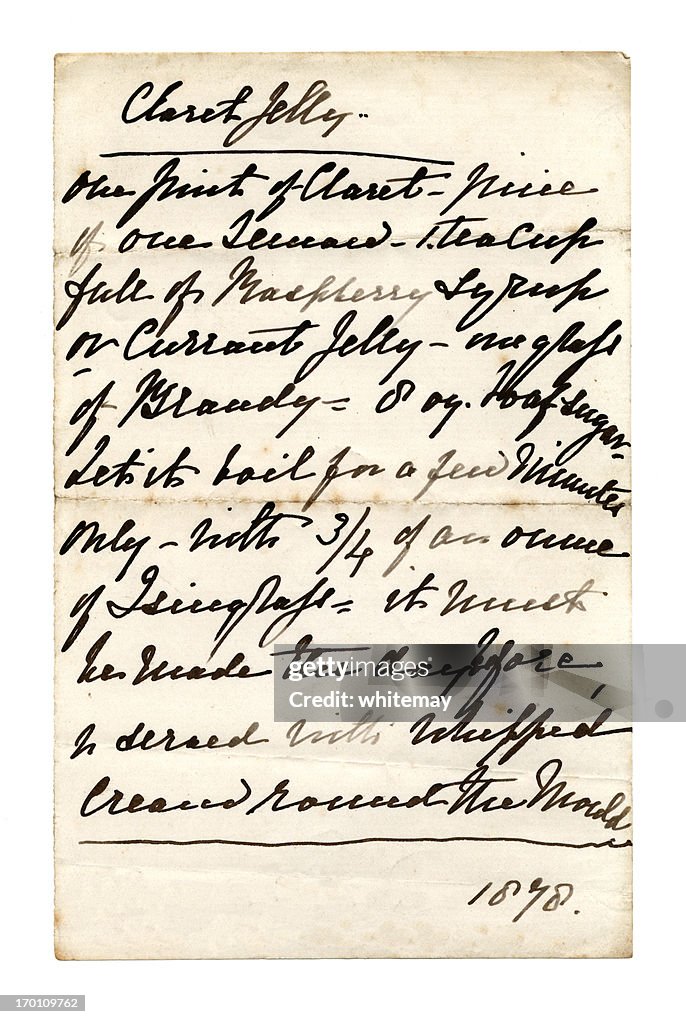 Claret Jelly..
One pint of Claret - juice
of one Lemon - 1 teacup
full of Raspberry Syrup
or Currant Jelly - one glass
of Brandy = 8 oz. loaf sugar -
Let it boil for a few minutes
only - with 3/4 of an ounce
of Isinglass = it must
be made the day before,
& served with whipped
Cream round the Mould
1878.
gettyimages
Credit: whitemay
170109762